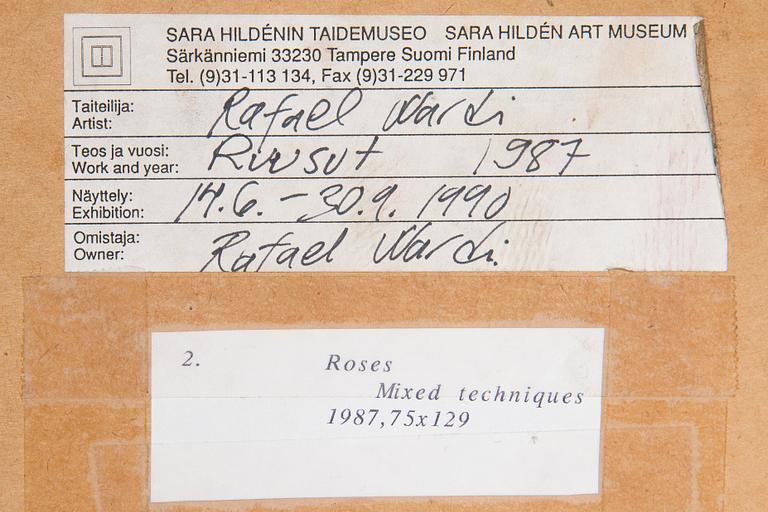 SARA HILDÉNIN TAIDEMUSEO SARA HILDÉN ART MUSEUM
Särkänniemi 33230 Tampere Suomi Finland
Tel. (9)31-113 134, Fax (9)31-229 971
Taiteilija: Rafael Wardi
Artist:
Teos ja vuosi: Ruusut 1987
Work and year:
Näyttely: 14.6.-30.9. 1990
Exhibition:
Omistaja: Rafael Wardi
Owner:
2. Roses
Mixed techniques
1987,75x129